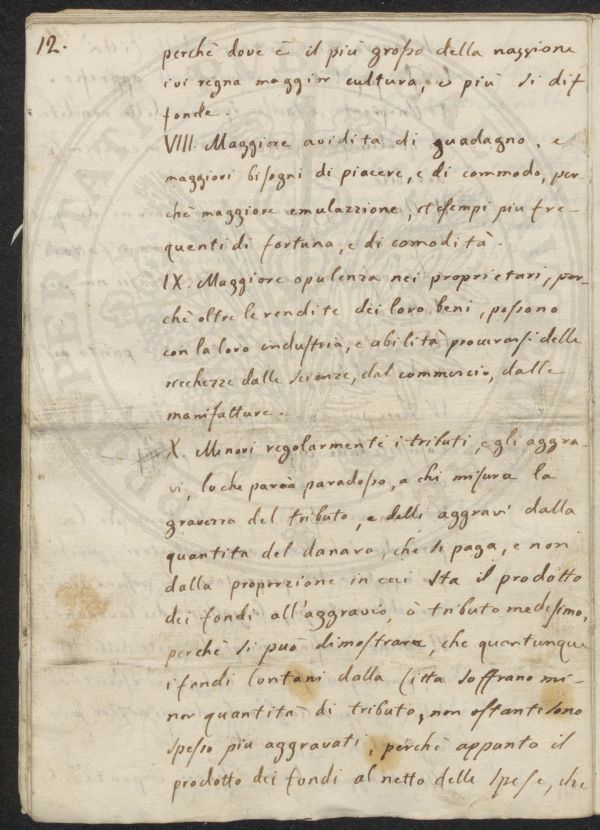 12.
perchè dove è il più grosso della nazzione
ivi regna maggior cultura, e più si dif
fonde.
VIII. Maggiore avidità di guadagno, e
maggiori bisogni di piacere, e di commodo, per
chè maggiore emulazzione, et esempi piu fre-
quenti di fortuna, e di comodità.
IX. Maggiore opulenza nei proprietari, per-
chè oltre le rendite dei loro beni, possono
con la loro industria, e abilità procurarsi delle
ricchezze dalle scienze, dal commercio, dalle
manifatture.
X. Minori regolarmente i tributi, e gli aggra
vi, lo che parrà paradosso, a chi misura la
gravezza del tributo, e delli aggravi dalla
quantita del danaro, che si paga, e non
dalla proporzione in cui sta il prodotto
dei fondi all'aggravio, ò tributo medesimo,
perchè si può dimostrare, che quantunque
i fondi lontani dalla Citta soffrano mi-
nor quantità di tributo, non ostante sono
spesso piu aggravati, perchè appunto il
prodotto dei fondi al netto delle spese, che